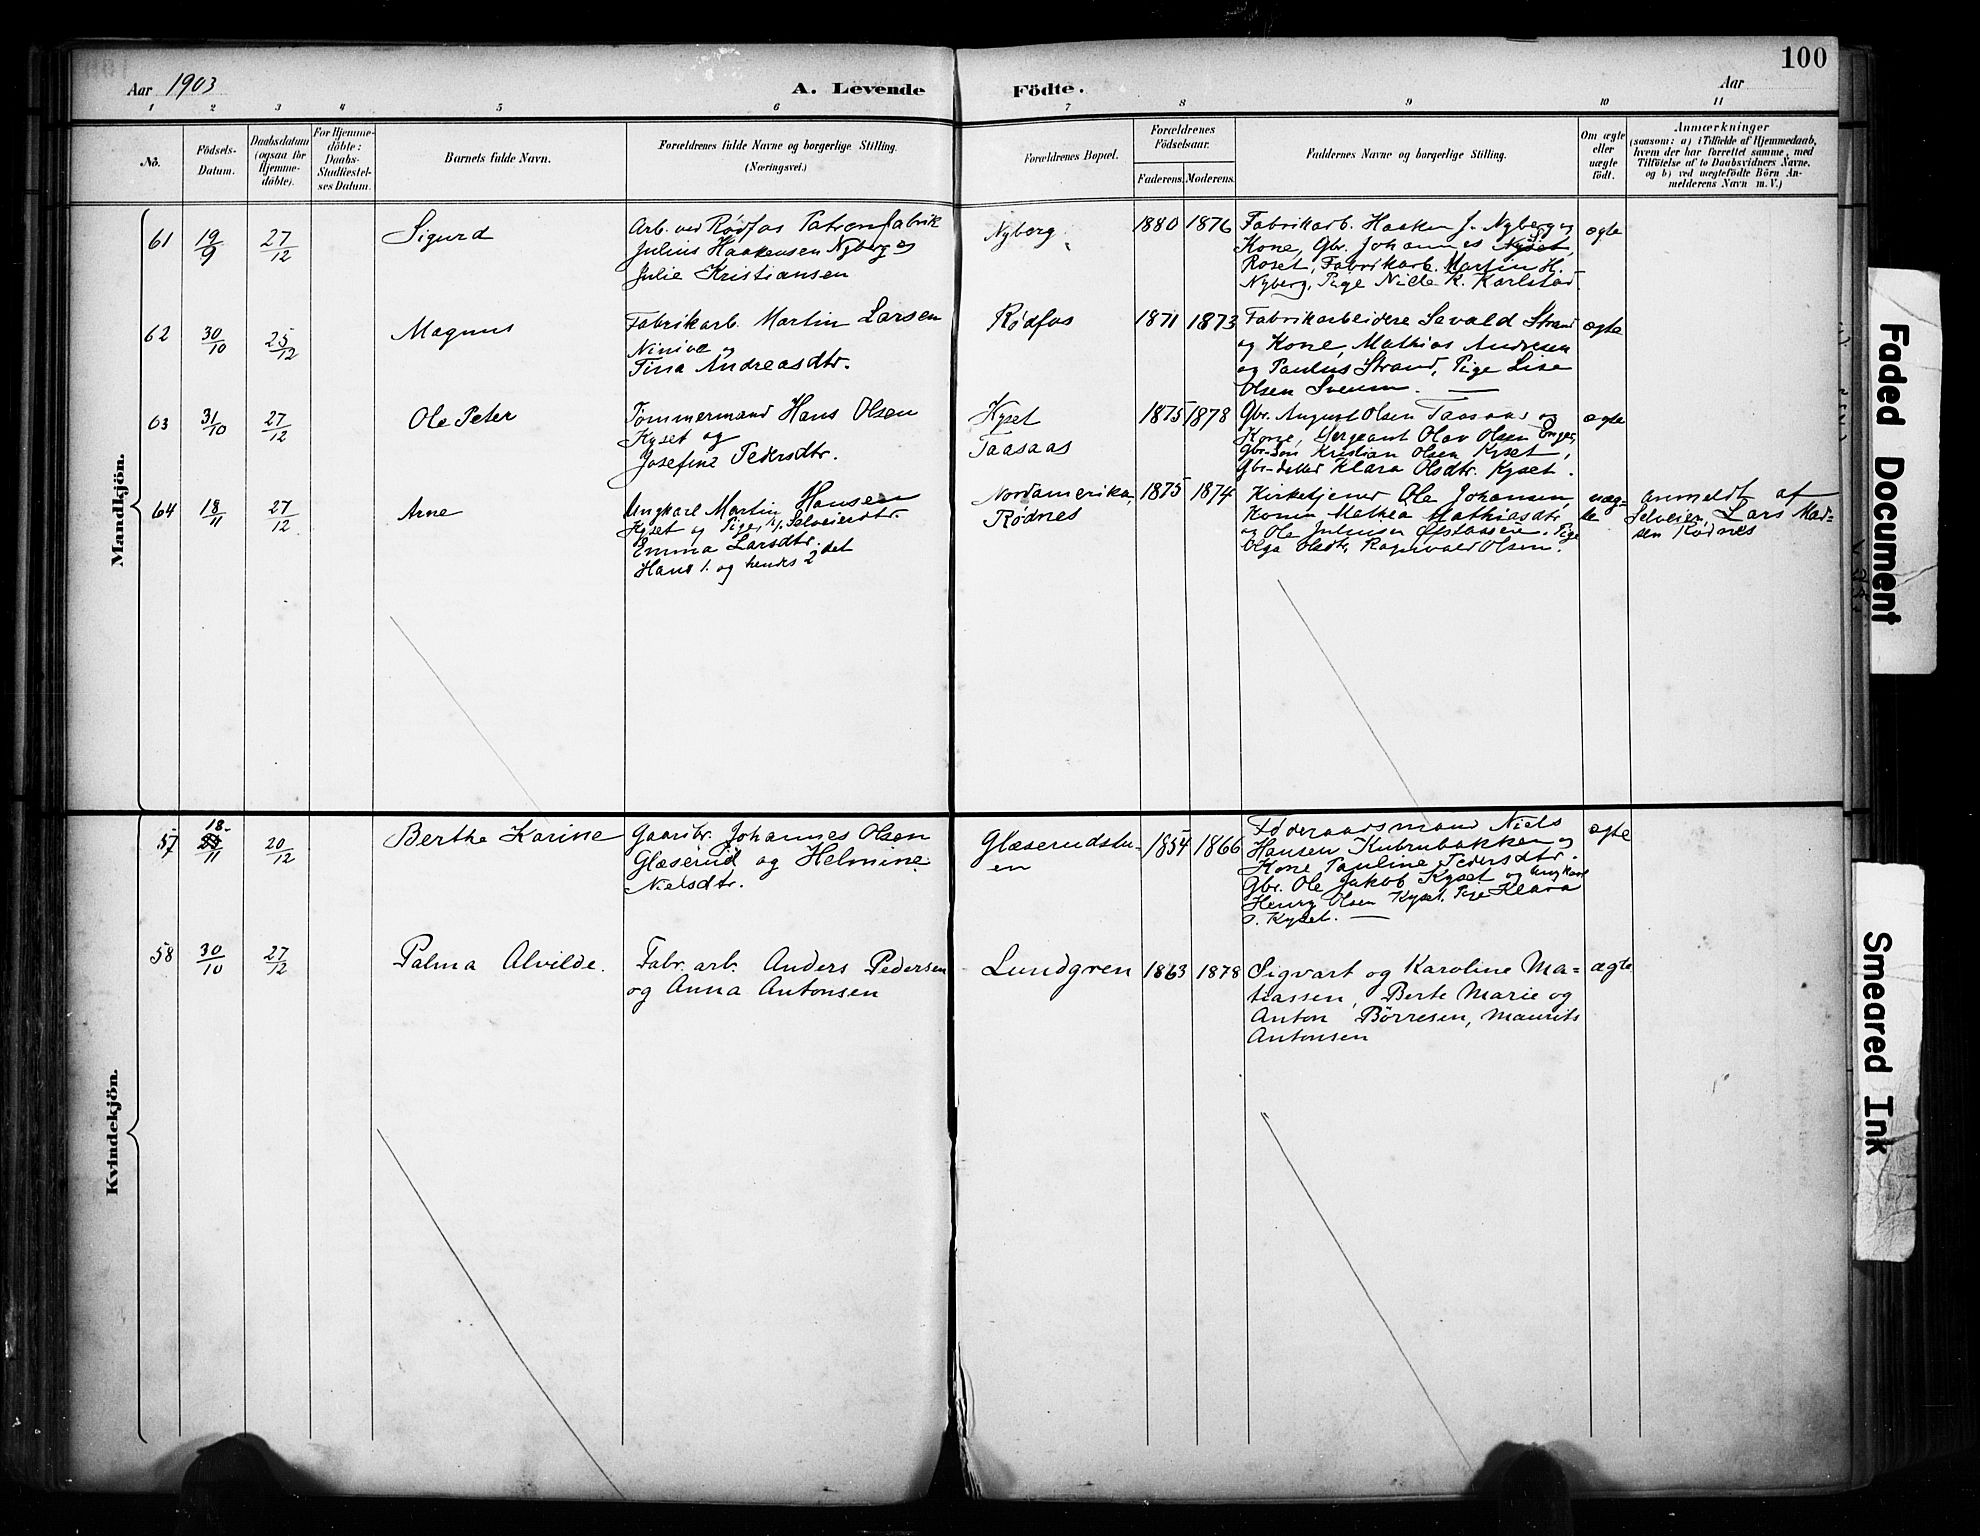 100
Aar 1903
A. Levende Födte.
Aar
1 2 3 4 5 6 7 8 9 10 11
No.
Födsels-
Datum.
Daabsdatum
(ogsaa for
Hjemme-
döbte).
For Hjemme-
döbte:
Daabs-
Stadfæstel-
ses Datum.
Barnets fulde Navn.
Forældrenes fulde Navne og borgerlige Stilling.
(Næringsvei.)
Forældrenes Bopæl.
Forældrenes
Födselsaar.
Faderens.
Moderens.
Faddernes Navne og borgerlige Stilling.
Om ægte
eller
uægte
födt.
Anmærkninger
(saasom: a) i Tilfælde af Hjemmedaab,
hvem der har forrettet samme, med
Tilföielse af to Daabsvidners Navne,
og b) ved uægtefödte Börn An-
melderens Navn m. V.)
Mandkjön.
61 19/9 27/12 Sigurd
Arb. ved Rødfos Patronfabrik
Julius Haakensen Nyberg og
Julie Kristiansen
Nyberg
1880 1876
Fabrikarb. Haaken J. Nyberg og
Kone, Gbr. Johannes
Roset, Fabrikarb. Martin H.
Nyberg, Pige K. Karlstad.
ægte
62 30/10 25/12 Magnus
Fabrikarb. Martin Larsen
Ninive og
Tina Andreasdtr.
Rødfos
1871 1873
Fabrikarbeidere Sevald Strand
og Kone, Mathias Andresen
og Paulus Strand, Pige Lise
Olsen Sveum.
ægte
63 31/10 27/12 Ole Peter
Tømmermand Hans Olsen
Kyset og
Josefine Pedersdtr.
Kyset
Taasaas
1875 1878
Gbr. August Olsen Taasaas og
Kone, Sergeant Olav Olsen
Gbr-søn Kristian Olsen Kyset,
Gbr-datter Klara Olsdtr. Kyset.
ægte
64 18/11 27/12 Arne
Ungkarl Martin Hansen
Kyset og Pige, Selveierdtr.
Emma Larsdtr.
Hans 1. og hendes 2det
Nordamerika,
Rødnes
1875 1874
Kirketjener Ole Johansen,
Kone Mathea Mathiasdtr.
og Ole Julius Pige
Olga Olsdtr. Ragnvald Olsen.
uæg-
te
anmeldt af
Selveier Lars Mad-
sen Rødnes
Kvindekjön.
57 18/11 20/12 Berthe Karine
Gaardbr. Johannes Olsen
Glæserud og Helmine
Nielsdtr.
Glæserudstu-
en
1854 1866
Føderaadsmand Niels
Hansen Kubrubakken og
Kone Pauline Pedersdtr.
Gbr. Ole Jakob Kyset og Ungkarl
Henry Olsen Kyset. Pige Klara
O. Kyset.
ægte
58 30/10 27/12 Palma Alvilde.
Fabr. arb. Anders Pedersen
og Anna Antonsen
Lundgren
1863 1878
Sigvart og Karoline Ma-
tiassen, Berte Marie og
Anton Børresen, Maurits
Antonsen
ægte
Faded Document
Smeared Ink